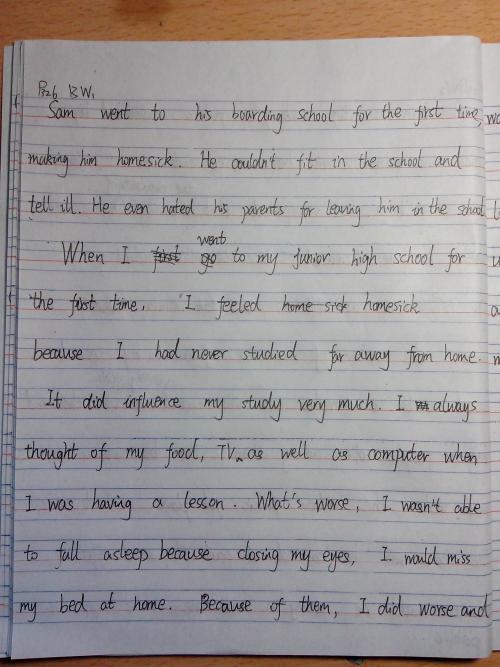 P326 BW1
Sam went to his boarding school for the first time,
making him homesick. He couldn't fit in the school and
tell ill. He even hated his parents for leaving him in the school
When I went to my junior high school for
the first time, I feeled home sick homesick
because I had never studied far away from home.
It did influence my study very much. I always
thought of my food, TV as well as computer when
I was having a lesson. What's worse, I wasn't able
to fall asleep because closing my eyes, I would miss
my bed at home. Because of them, I did worse and